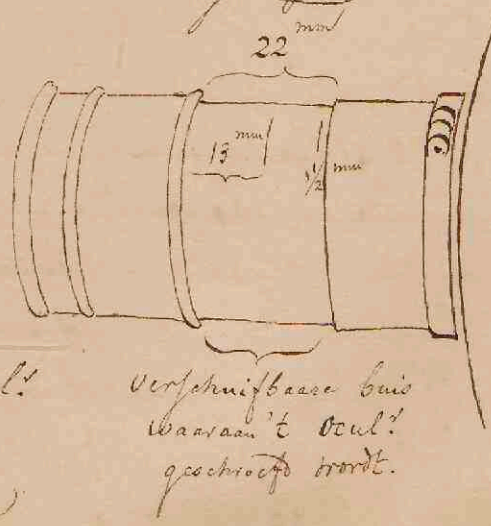 mm
22
13 mm
1/2 mm
l.r
verschuifbaare buis
waaraan 't Ocul.r
geschroefd wordt.